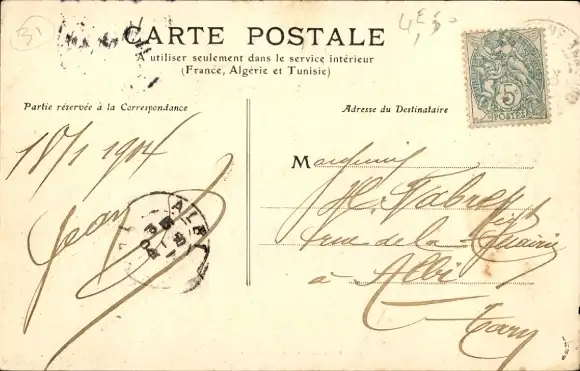 31
4E,50
CARTE POSTALE
A utiliser seulement dans le service intérieur
(France, Algérie et Tunisie)
5c
POSTES
Partie réservée à la Correspondance
Adresse du Destinataire
18/1 1904
Jean
ALBI
M
rue de la
à Albi
Tarn